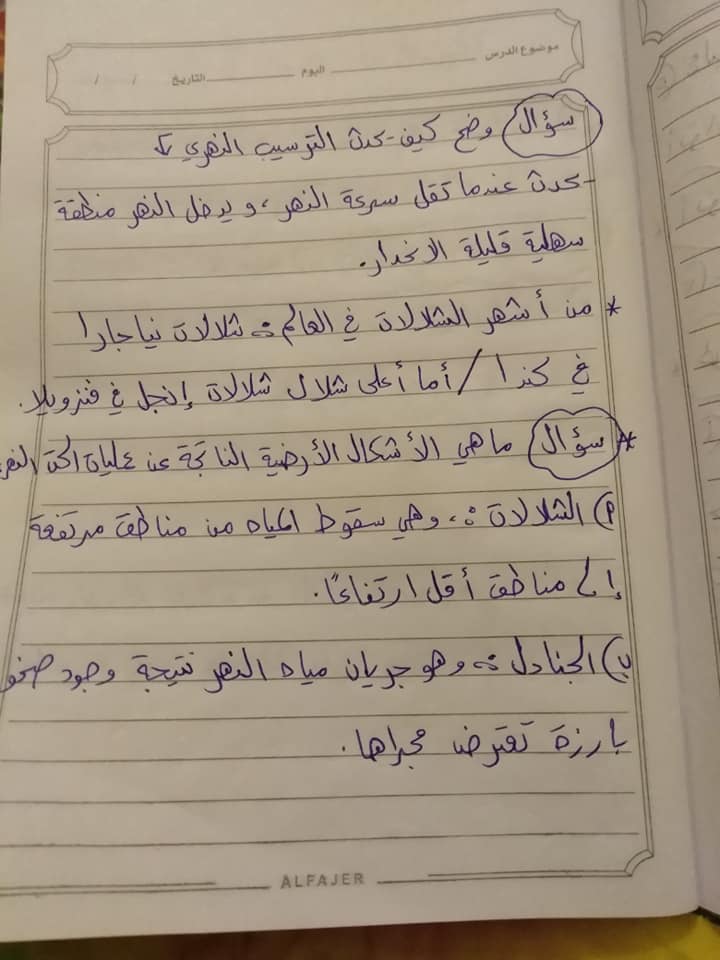 موضوع الدرس اليوم التاريخ / /
سؤال وضح كيف يحدث الترسيب النهري
يحدث عندما تقل سرعة النهر، ويدخل النهر منطقة
سهلية قليلة الانحدار.
* من أشهر الشلالات في العالم: شلالات نياجارا
في كندا / أما أعلى شلال شلالات إنجل في فنزويلا.
* سؤال ما هي الأشكال الأرضية الناتجة عن عمليات الحت النهر
أ) الشلالات: وهي سقوط المياه من مناطق مرتفعة
إلى مناطق أقل ارتفاعًا.
ب) الجنادل: وهو جريان مياه النهر نتيجة وجود صخو
بارزة تعترض مجراها.
ALFAJER